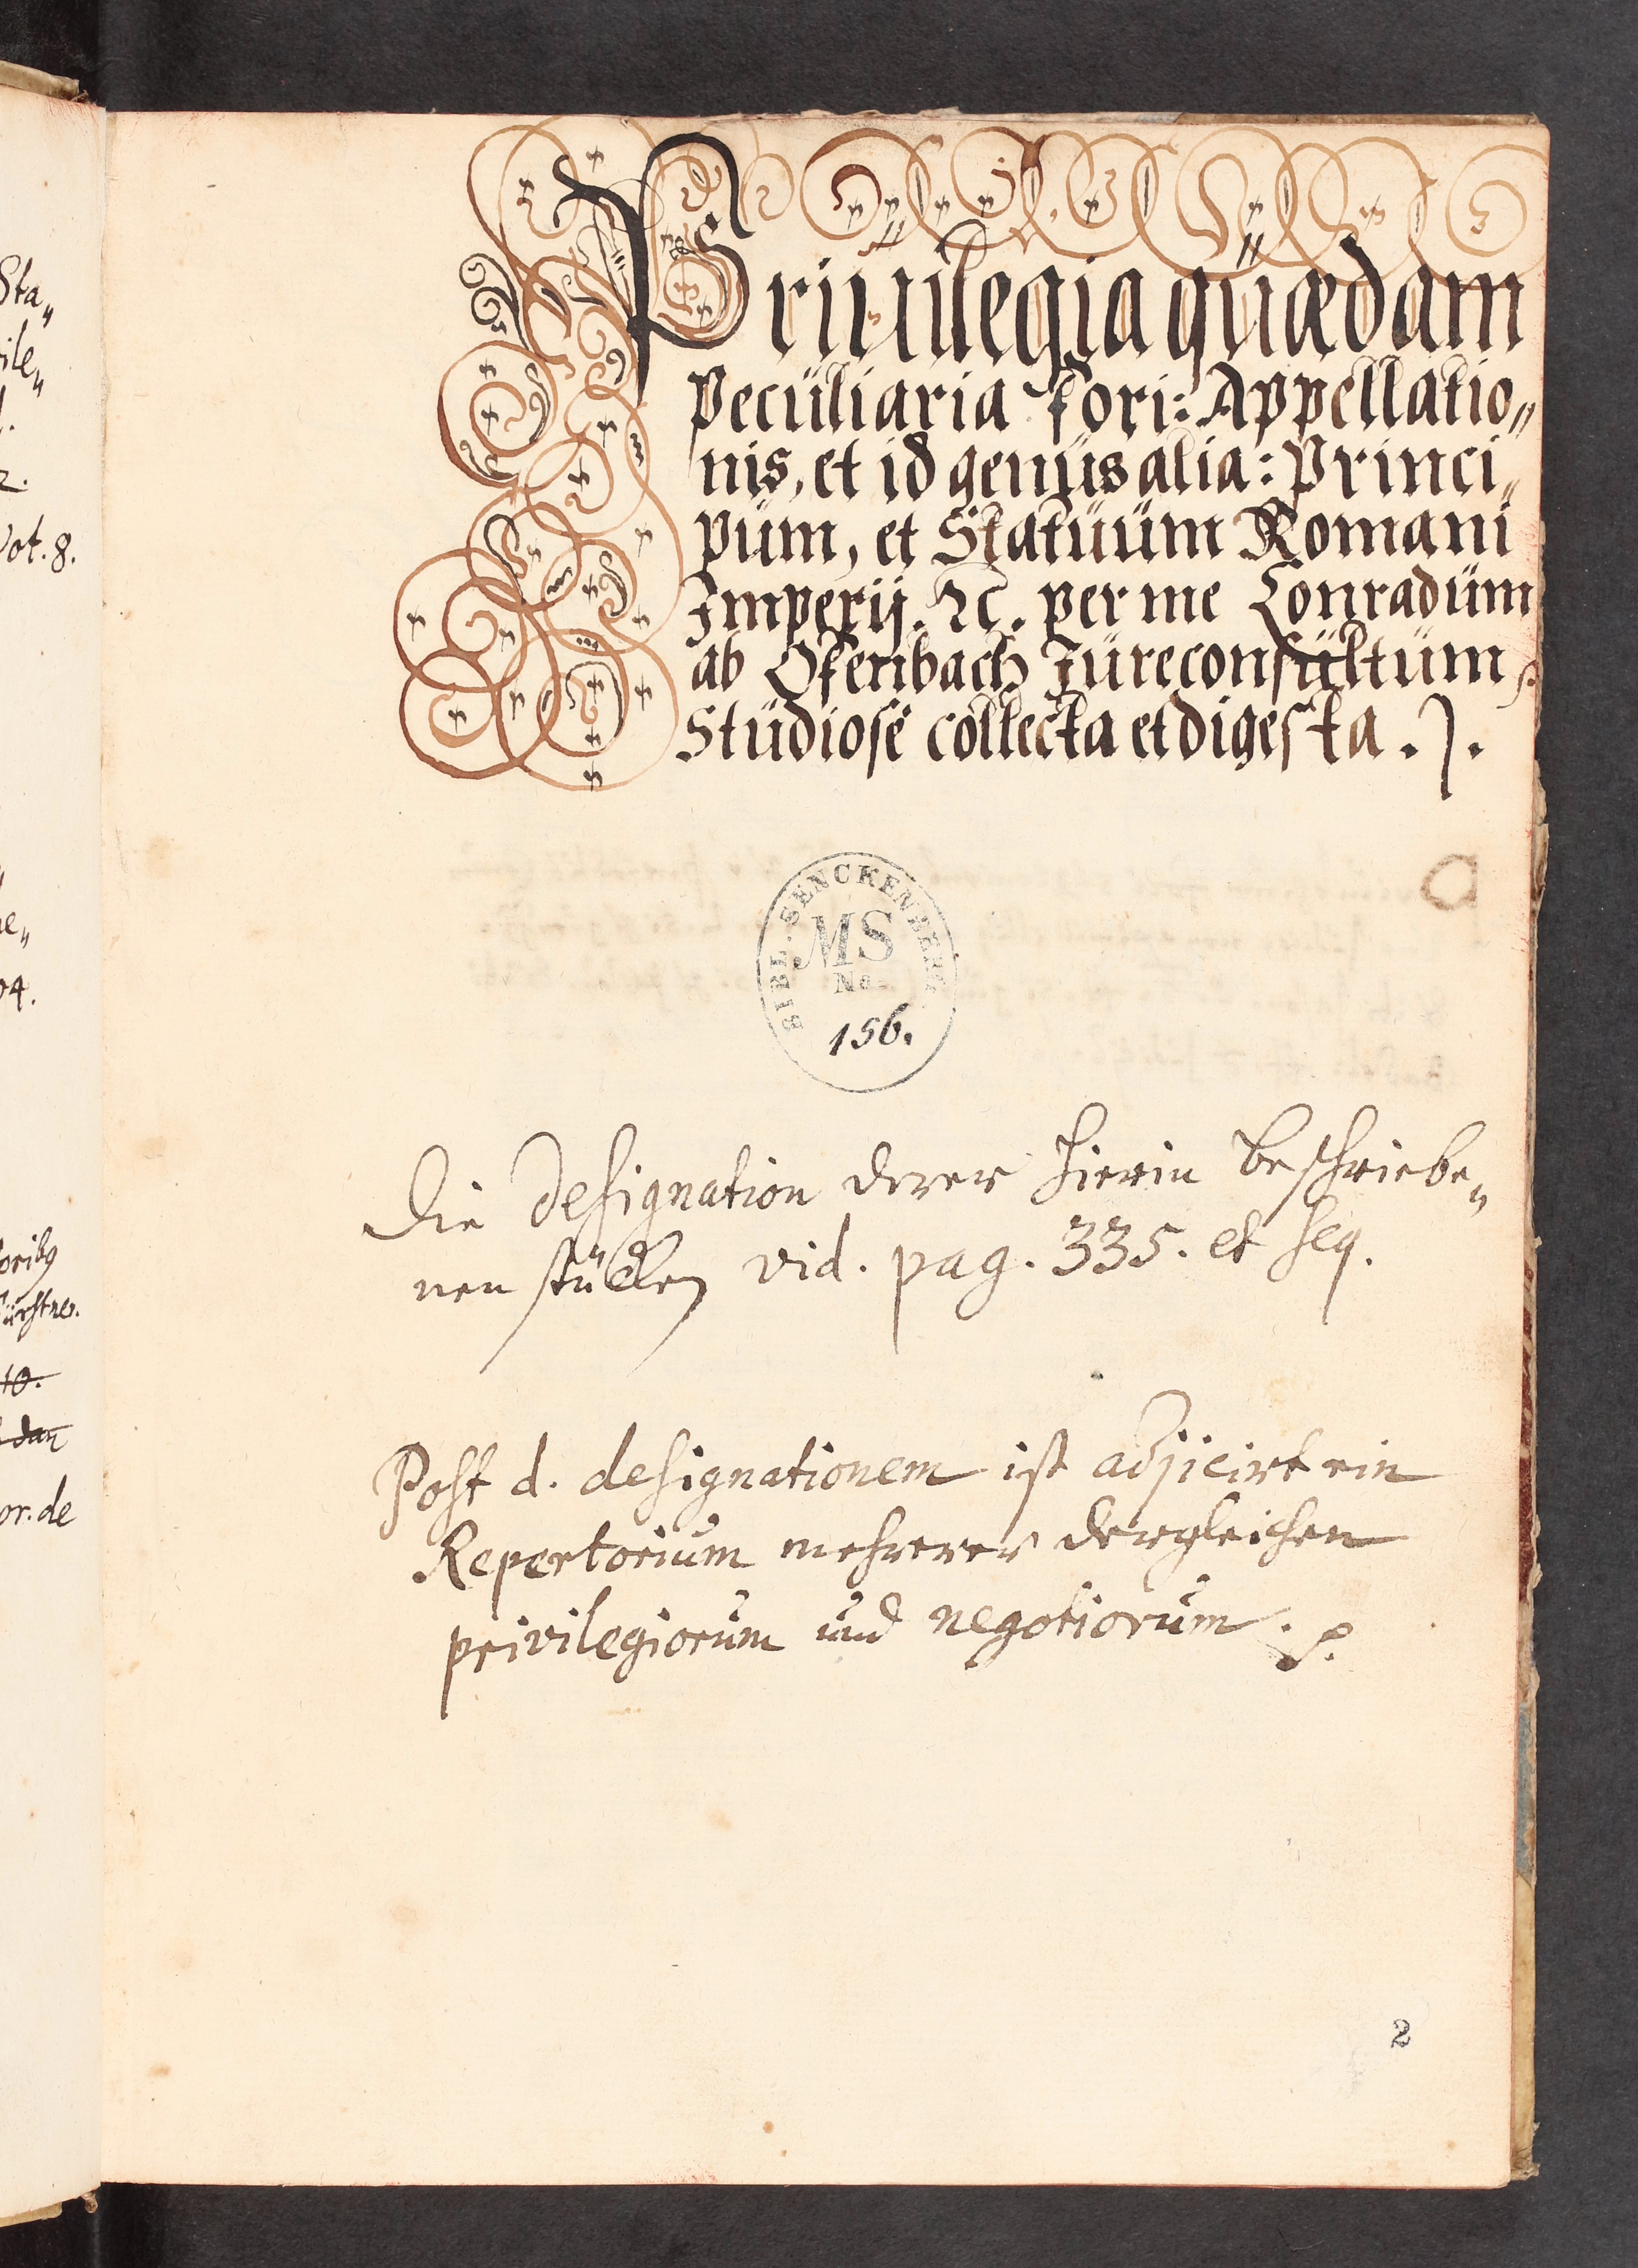 Sta„
ile„
2.
Vot. 8.
04.
or. de
Priuilegia quædam
Peculiaria fori: Appellatio„
nis, et id genus alia: Princi„
pum, et Statuum Romani
Imperij. ꝛc. per me Conradum
ab Ofenbach Jureconsultum
Studiosè collecta et digesta.
BIBL. SENCKENBERG.
MS
No.
156.
Die Designation derer hierin beschriebe„
nen stücken vid. pag. 335. et seq.
Post d. designationem ist adjicirt ein
Repertorium mehrerer dergleichen
privilegiorum und negotiorum.
2